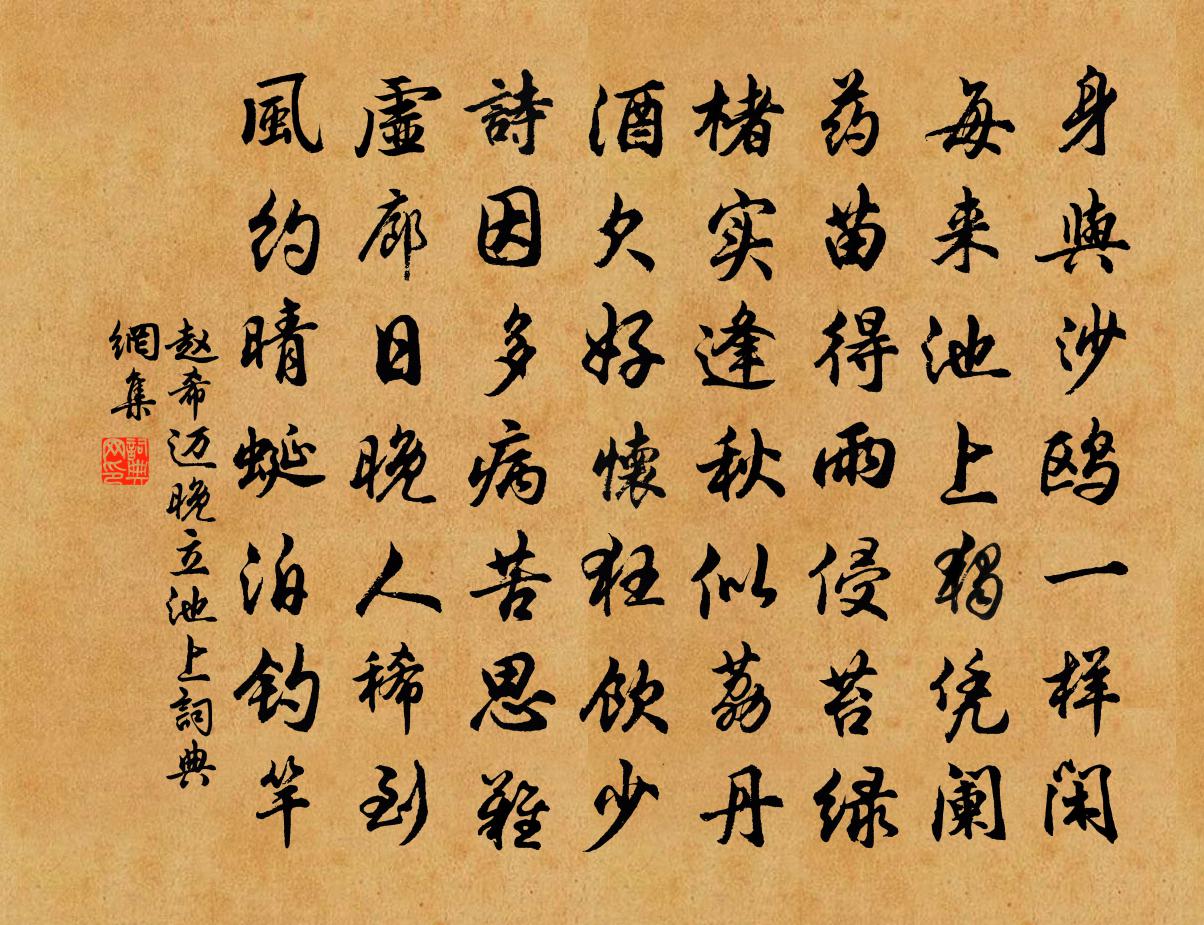 身與沙鸥一样闲
每来池上独凭阑
药苗得雨侵苔绿
楮实逢秋似荔丹
酒欠好懷狂饮少
詩因多病苦思難
虛廊日晚人稀到
風约晴蜒泊钓竿
赵希迈晚立池上詞典
網集
詞典网印